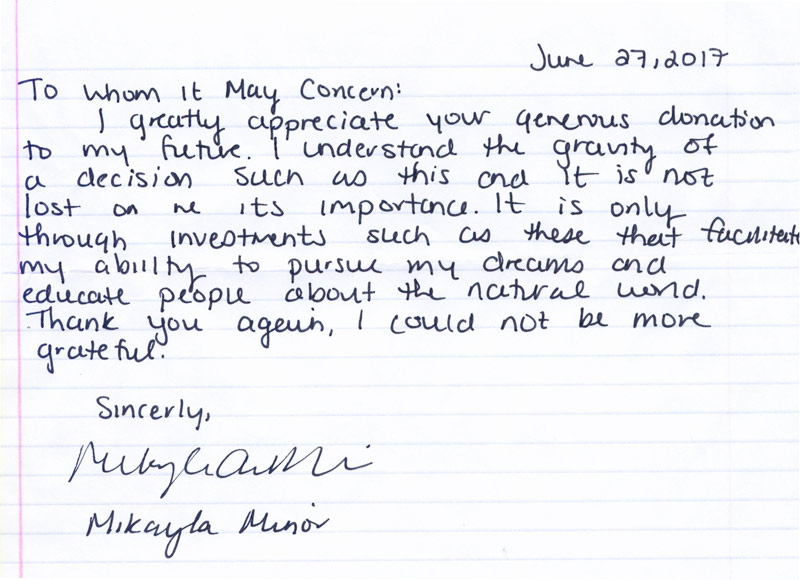 June 27, 2017
To Whom It May Concern:
I greatly appreciate your generous donation
to my future. I understand the gravity of
a decision such as this and it is not
lost on me its importance. It is only
through investments such as these that facilitate
my ability to pursue my dreams and
educate people about the natural world.
Thank you again, I could not be more
grateful.
Sincerly,
Mikayla Minor